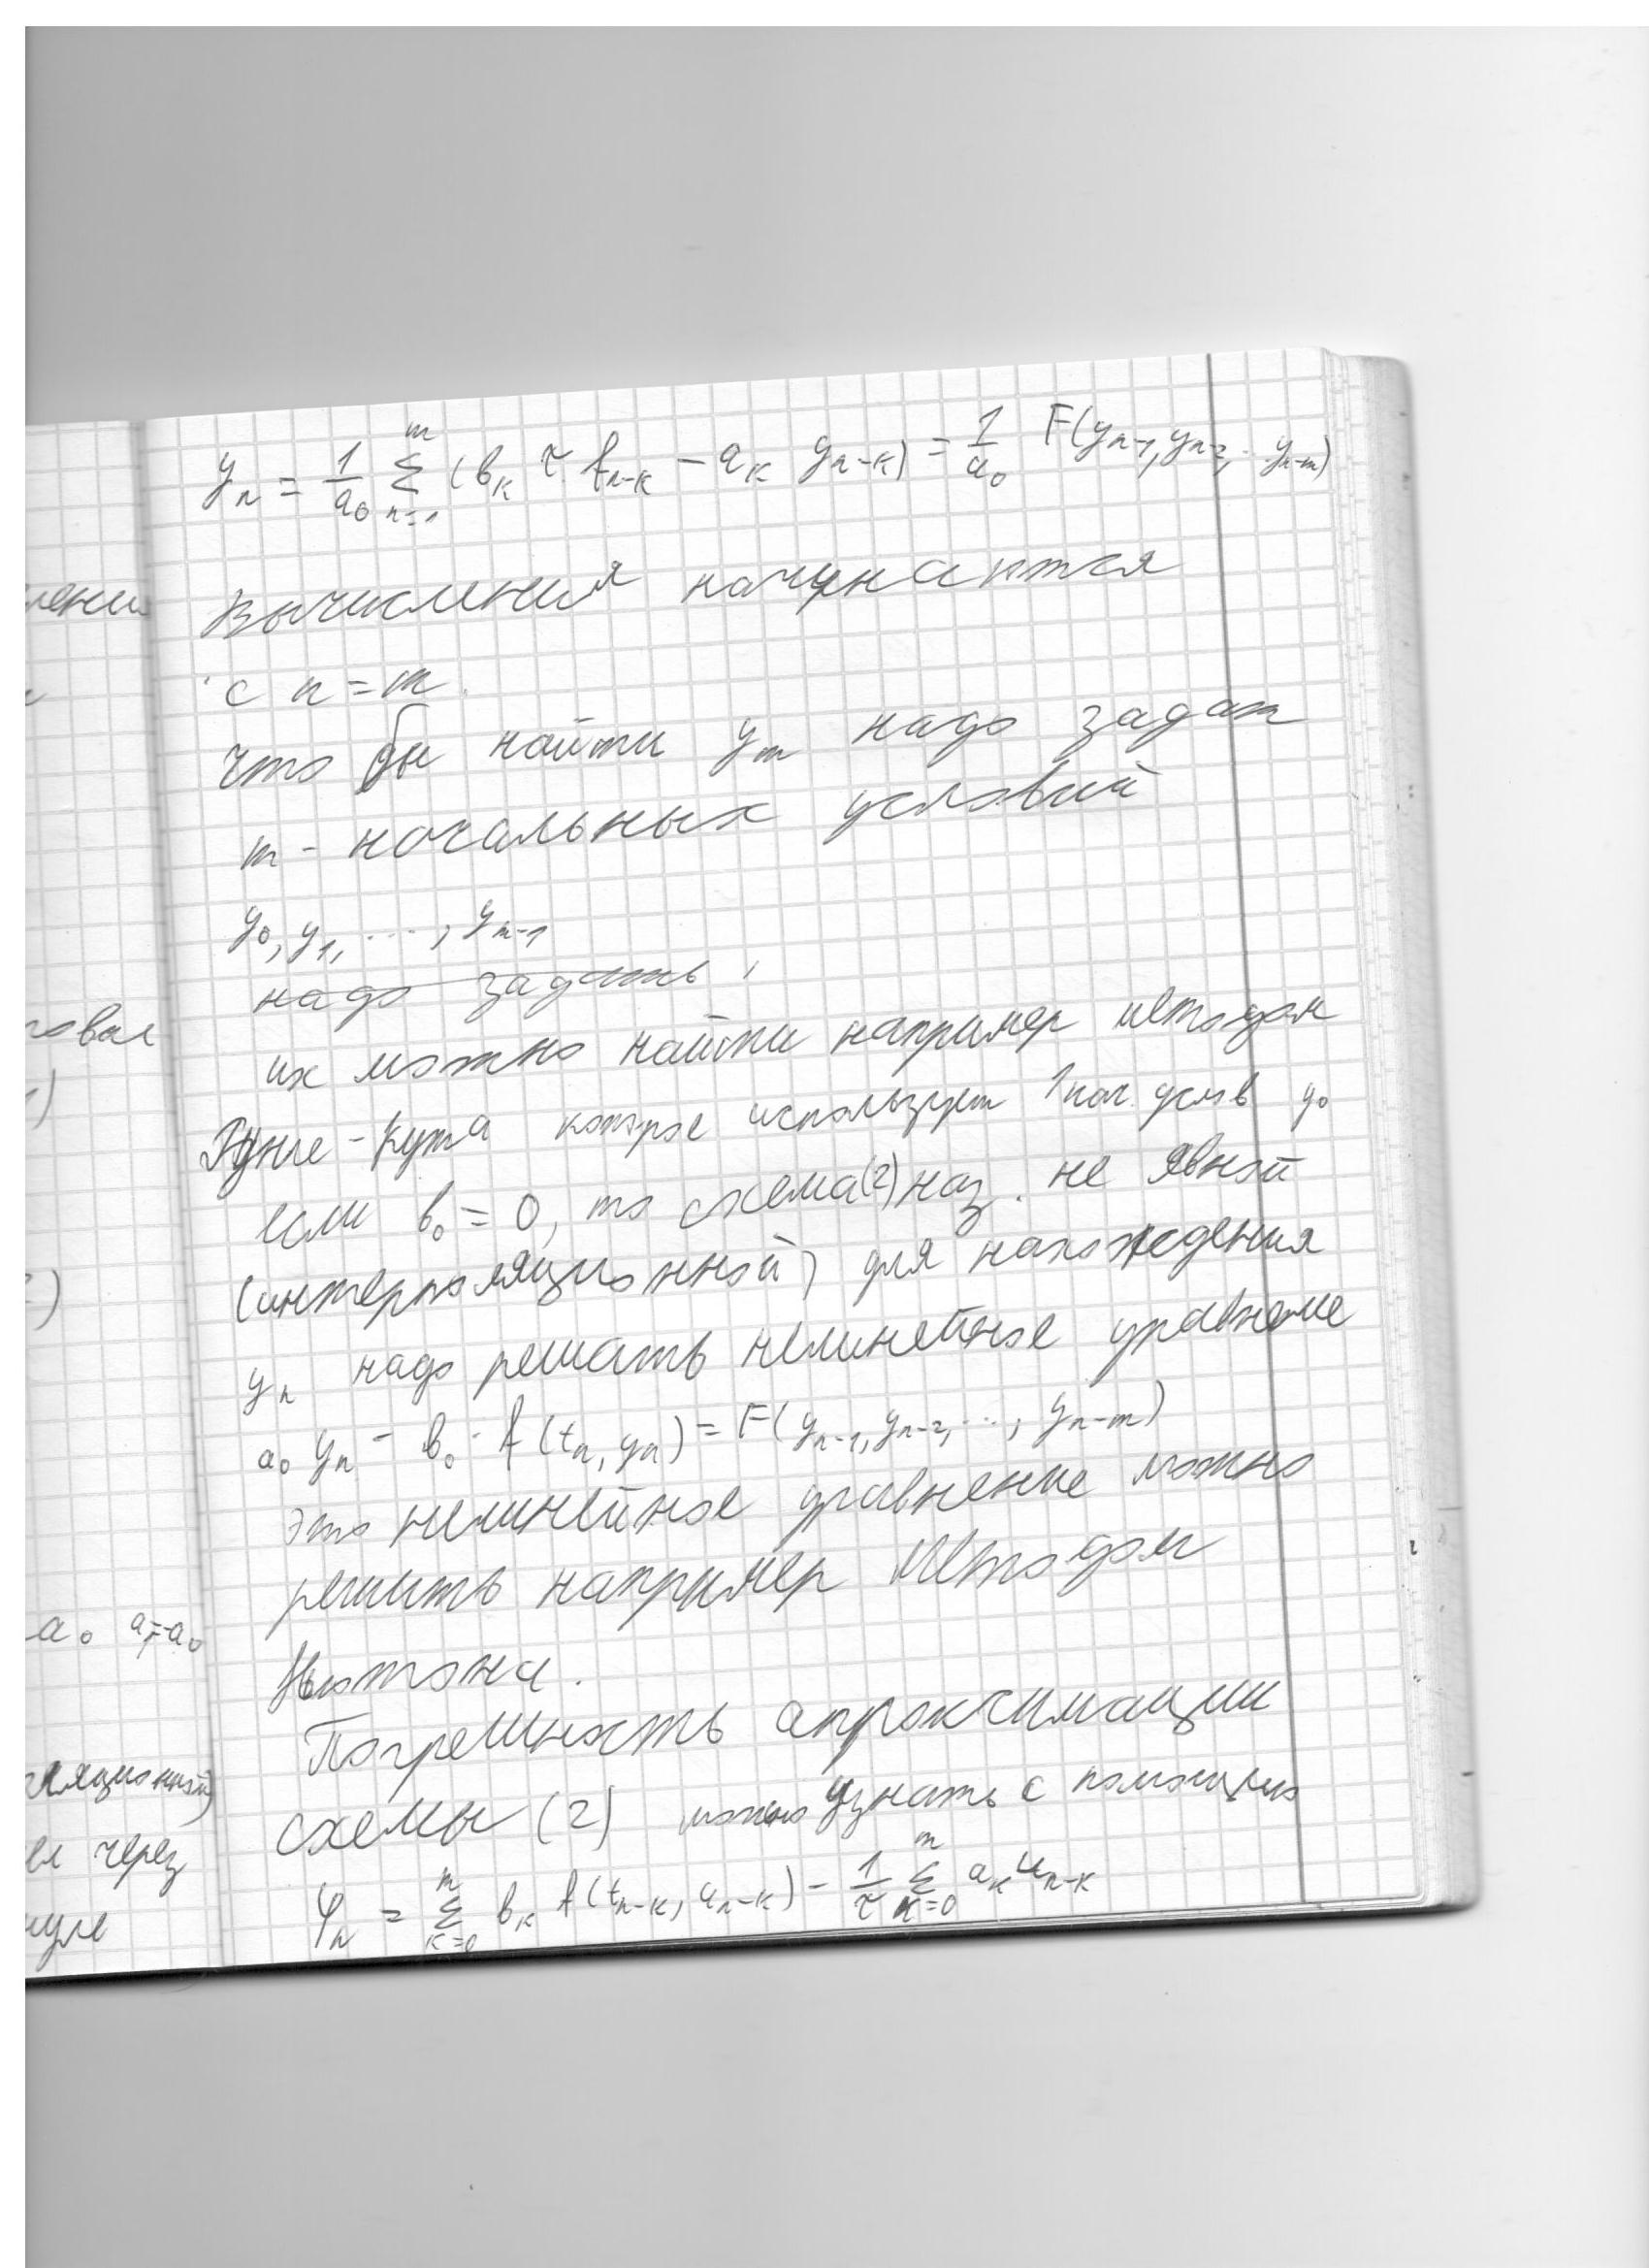 лени
y_n = 1/a_0 Σ_{n=1}^{m} (b_k τ f_{n-k} - a_k y_{n-k}) = 1/a_0 F(y_{n-1}, y_{n-2}, .. y_{n-m})
Вычисления начинаются
с n = m.
что бы найти y_m надо задат
m - начальных условий
y_0, y_1, ..., y_{m-1}
надо задать,
их можно найти например методом
Рунге - Кута которое использует 1 нач. услов y_0
если b_0 = 0, то схема (2) наз. не явной
(интерполяционной) для нахождения
y_n надо решать нелинейное уравнение
a_0 y_n - b_0 · f(t_n, y_n) = F(y_{n-1}, y_{n-2}, ..., y_{n-m})
это нелинейное уравнение можно
решить например Методом
Ньютона.
Погрешность апроксимации
схемы (2) можно узнать с помощью
φ_n = Σ_{k=0}^{m} b_k f(t_{n-k}, u_{n-k}) - 1/τ Σ_{k=0}^{m} a_k u_{n-k}
овал
)
)
a_0 a_1=-a_0
ляционной)
ел через
муле